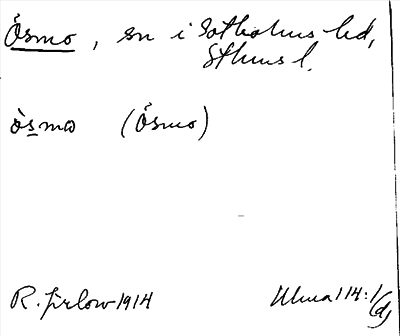 Ösmo, sn i Sotholms hd,
Sthms l.
ò̀smω (Ösmo)
R. Jirlow 1914
Ulma 114:1
(d)